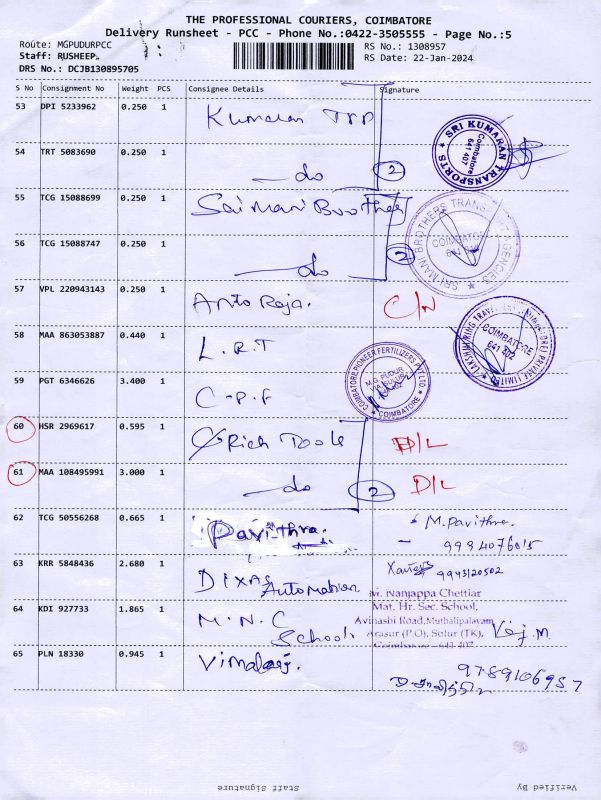 THE PROFESSIONAL COURIERS, COIMBATORE
Delivery Runsheet - PCC - Phone No.:0422-3505555 - Page No.:5
Route: MGPUDURPCC
RS No.: 1308957
Staff: RUSHEEP.
RS Date: 22-Jan-2024
DRS No.: DCJB130895705
S No Consignment No Weight PCS Consignee Details Signature
53 DPI 5233962 0.250 1 Kumaran TPP
SRI KUMARAN TRANSPORTS
Coimbatore
641 407
54 TRT 5083690 0.250 1 do 2
55 TCG 15088699 0.250 1 Sai Mani Brother
SRI MANI BROTHERS TRANSPORT AGENCIES
COIMBATORE
56 TCG 15088747 0.250 1 do 2
57 VPL 220943143 0.250 1 Anto Roja. C/N
58 MAA 863053887 0.440 1 L.R.T
COIMBATORE
641 402
59 PGT 6346626 3.400 1 C-P.F
COIMBATORE PIONEER FERTILIZERS PVT LTD
M.G. PUDUR
COIMBATORE
60 HSR 2969617 0.595 1 Rich Tools D/L
61 MAA 108495991 3.000 1 do 2 D/L
62 TCG 50556268 0.665 1 Pavithra. - M.Pavithra.
63 KRR 5848436 2.680 1 DIXAS Automation 9943120502
64 KDI 927733 1.865 1 M.N.C School
M. Nanjappa Chettiar
Mat. Hr. Sec. School,
Avinashi Road, Muthalipalayam,
Arasur (P.O), Sulur (TK),
Coimbatore - 641 407
65 PLN 18330 0.945 1 Vimalraj. 9789106957
Staff Signature
Verified By